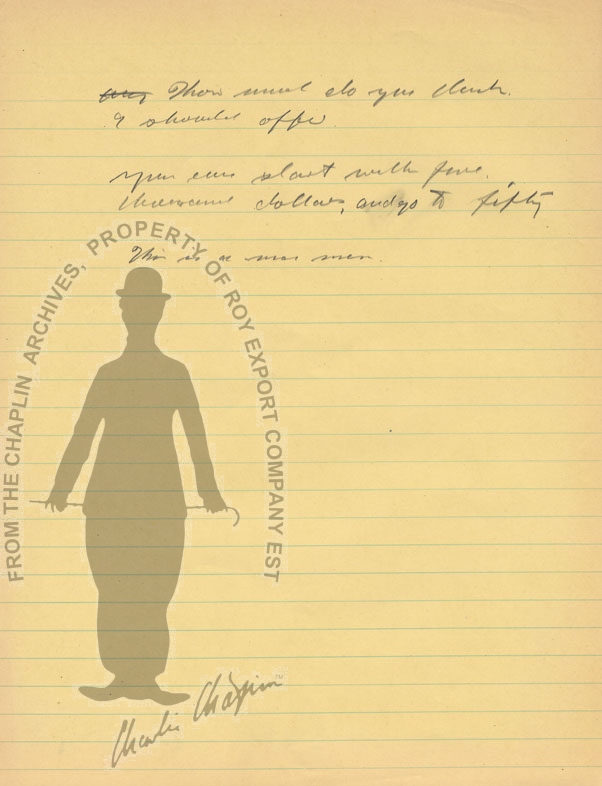 How much do you think
I should offer
You can start with five
thousand dollars, and go to fifty
This is a
FROM THE CHAPLIN ARCHIVES, PROPERTY OF ROY EXPORT COMPANY EST
Charlie Chaplin